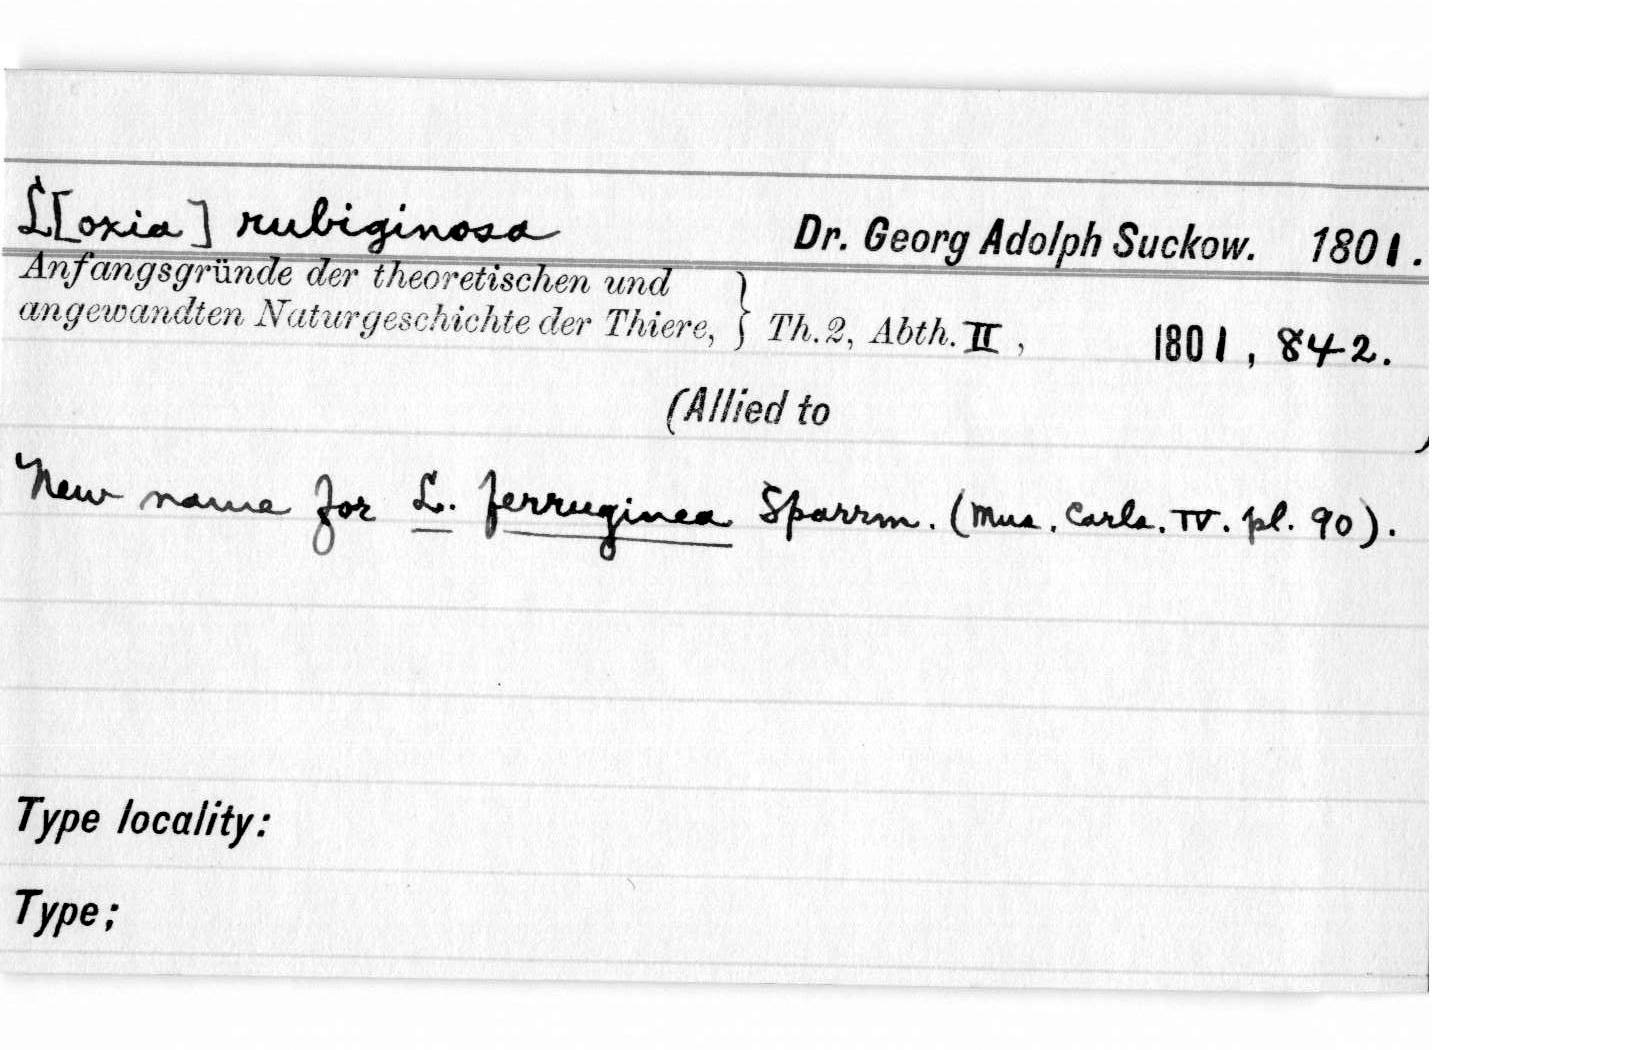 L[oxia] rubiginosa Dr. Georg Adolph Suckow. 1801.
Anfangsgründe der theoretischen und
angewandten Naturgeschichte der Thiere, } Th. 2, Abth. II, 1801, 842.
(Allied to )
New name for L. ferruginea Sparrm. (Mus. Carls. IV. pl. 90).
Type locality:
Type;